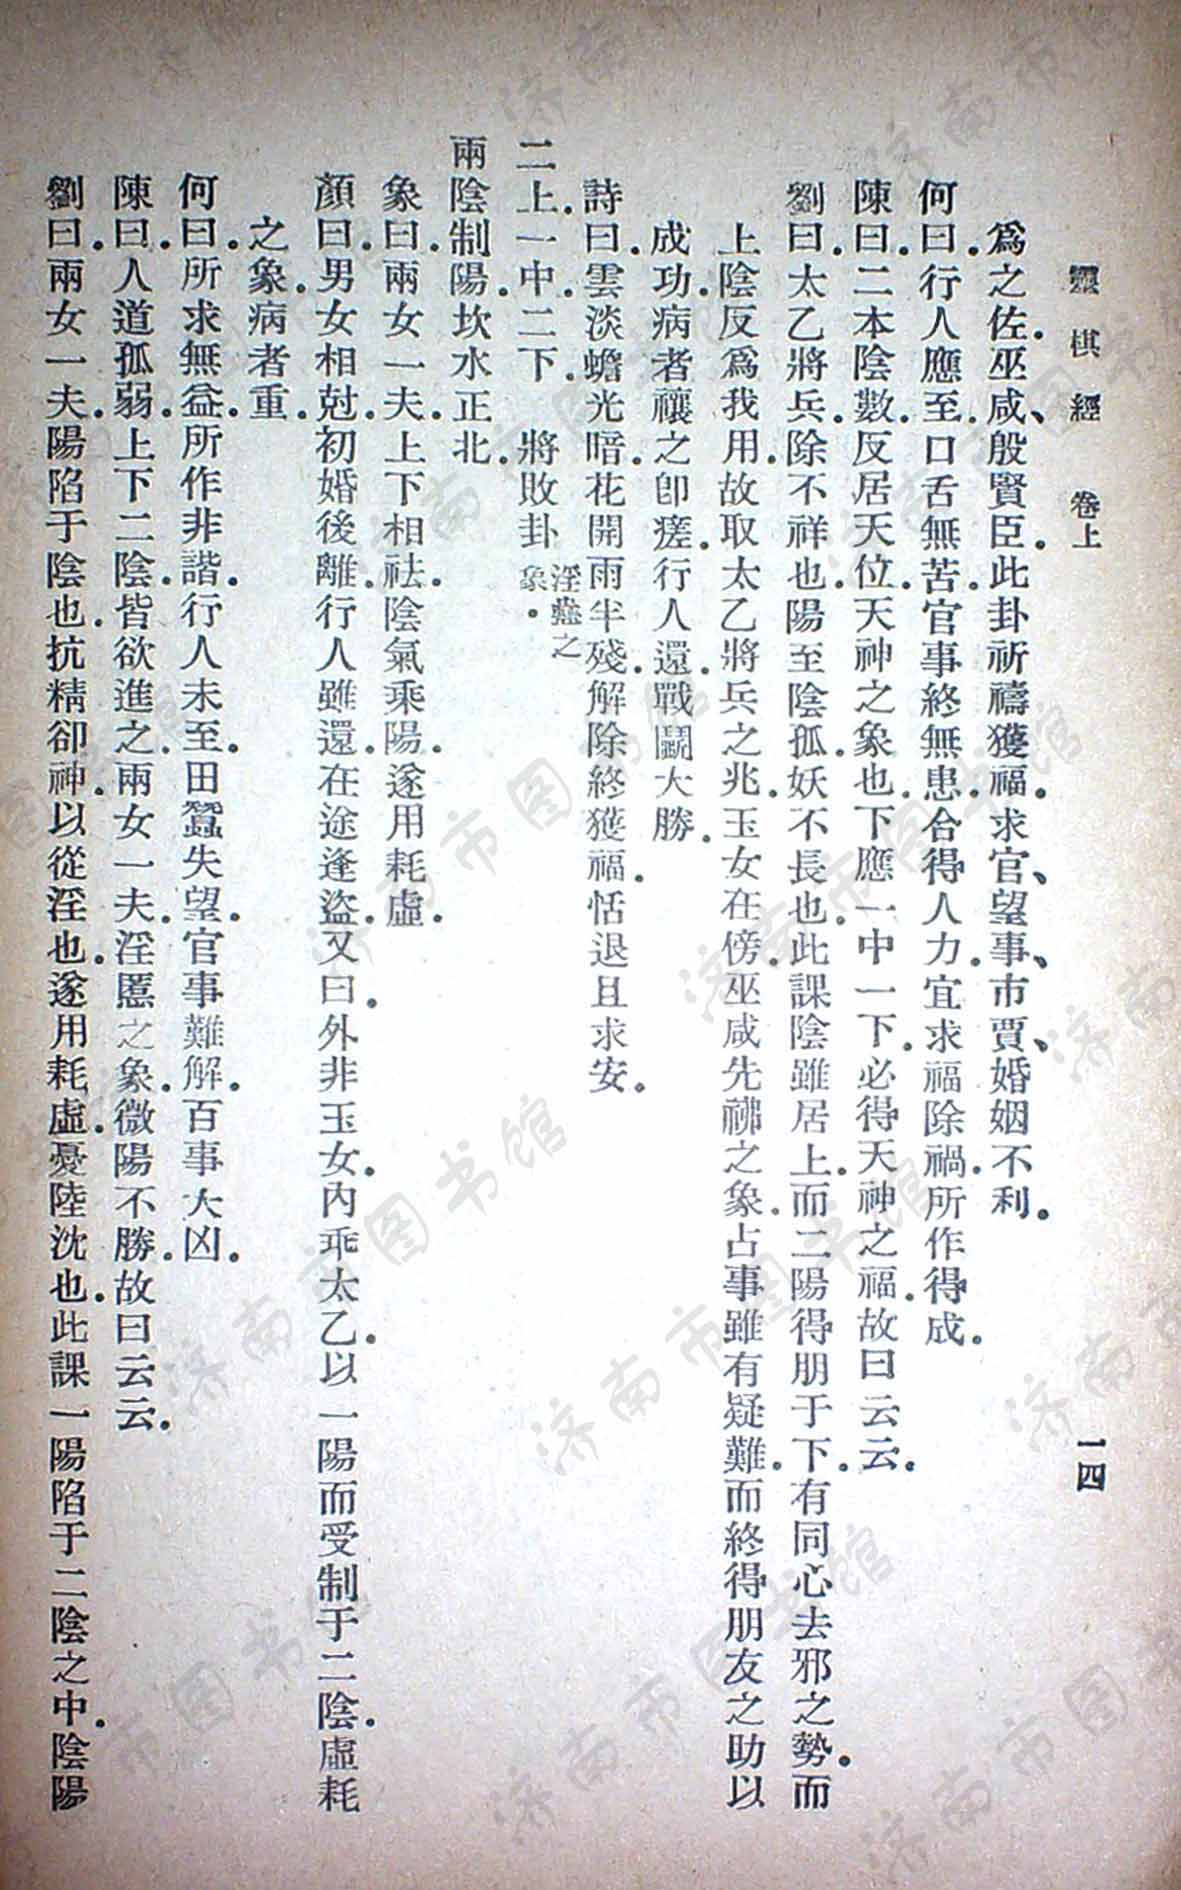 靈棋經　卷上　一四
爲之佐巫咸、殷賢臣。此卦祈禱獲福。求官、望事、市賈、婚姻不利。
何曰。行人應至。口舌無苦。官事終無患。合得人力。宜求福除禍。所作得成。
陳曰。二本陰數。反居天位。天神之象也。下應一中一下。必得天神之福。故曰云云。
劉曰。太乙將兵。除不祥也。陽至陰孤。妖不長也。此課陰雖居上。而二陽得朋于下。有同心去邪之勢。而
上陰反爲我用。故取太乙將兵之兆。玉女在傍。巫咸先祓之象。占事雖有疑難。而終得朋友之助。以
成功。病者禳之卽瘥。行人還。戰鬬大勝。
詩曰。雲淡蟾光暗。花開雨半殘。解除終獲福。恬退且求安。
二上。一中。二下。　將敗卦　淫蠱之象。
兩陰制陽。坎水正北。
象曰。兩女一夫。上下相祛。陰氣乘陽。遂用耗虛。
顏曰。男女相尅。初婚後離。行人雖還。在途逢盜。又曰。外非玉女。內乖太乙。以一陽而受制于二陰。虛耗
之象。病者重。
何曰。所求無益。所作非諧。行人未至。田蠶失望。官事難解。百事大凶。
陳曰。人道孤弱。上下二陰。皆欲進之。兩女一夫。淫慝之象。微陽不勝。故曰云云。
劉曰。兩女一夫。陽陷于陰也。抗精卻神。以從淫也。遂用耗虛。憂陸沈也。此課一陽陷于二陰之中。陰陽